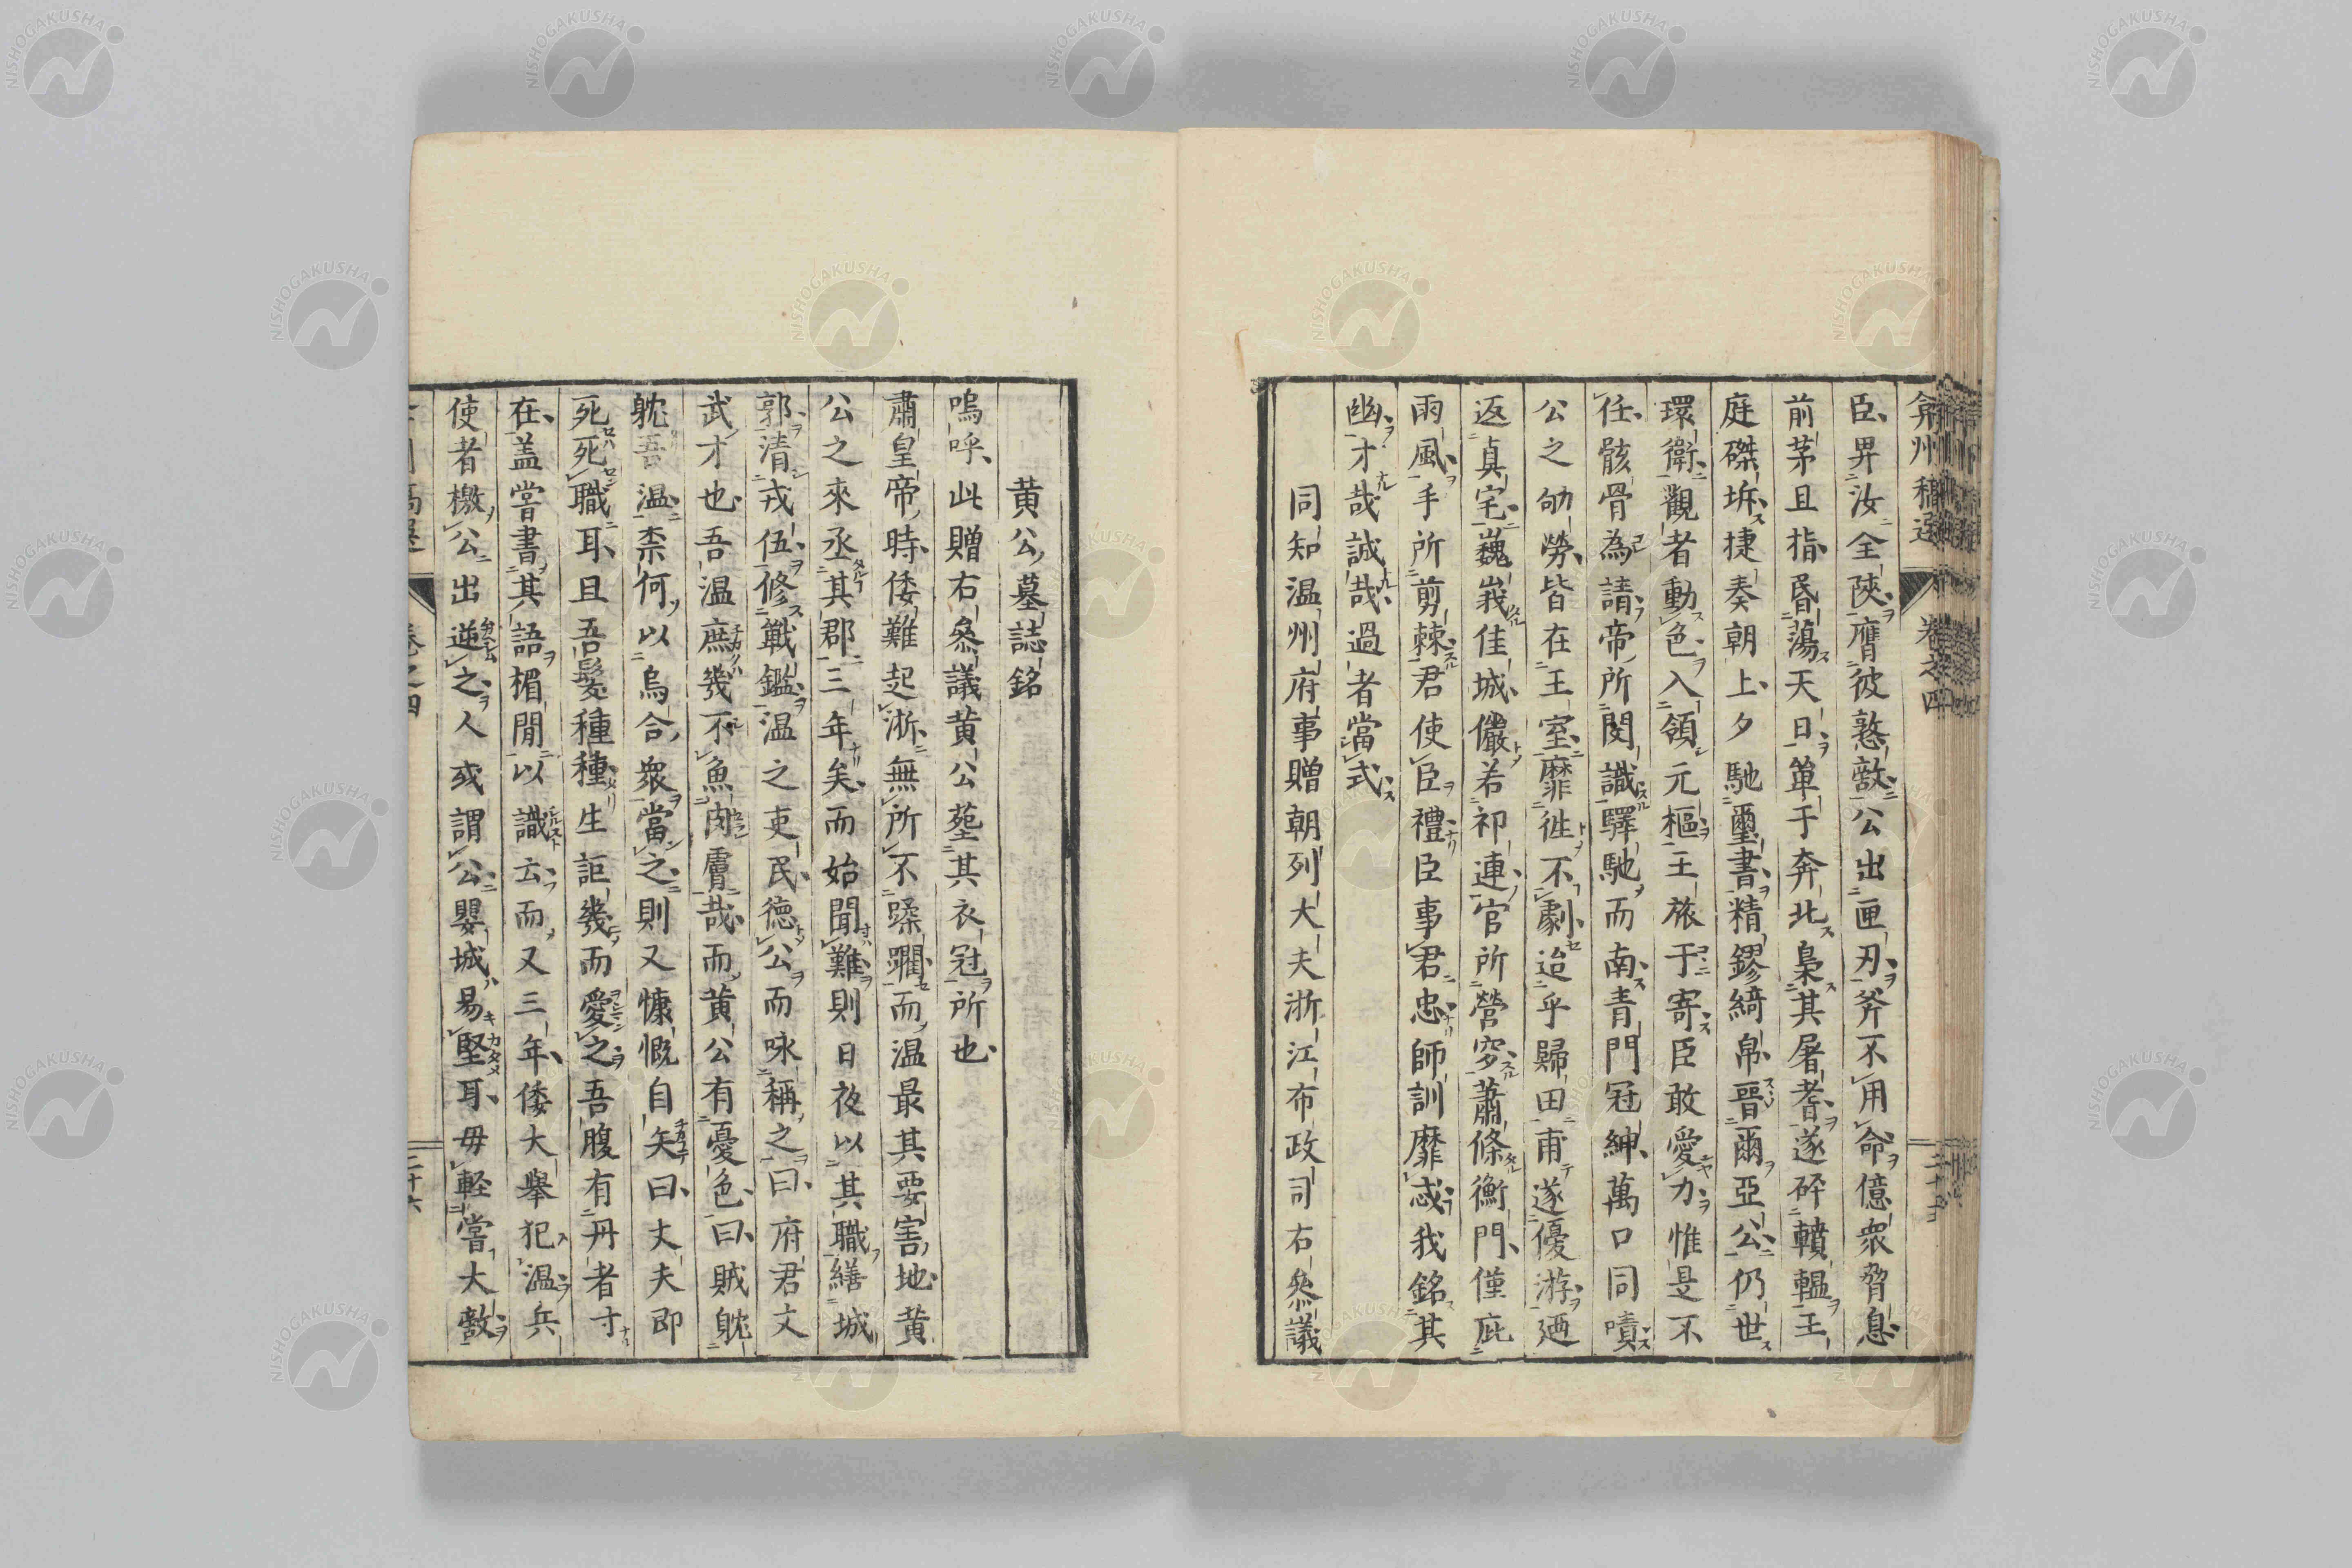 弇州稿選 卷之四
臣畀汝全陝膺彼憝敵公出匣刃斧不用命億衆脅息
前茅且指昏蕩天日單于奔北梟其屠耆遂碎轒輼王
庭磔坼捷奏朝上夕馳璽書精鏐綺帛晉爾亞公仍世
環衛觀者動色入領元樞王旅于寄臣敢愛力惟是不
任骸骨為請帝所閔識驛馳而南青門冠紳萬口同嘖
公之劬勞皆在王室靡徃不劇迨乎歸田甫遂優游廼
返真宅巍峩佳城儼若祁連官所營穸蕭條衡門僅庇
雨風手所剪棘君使臣禮臣事君忠師訓靡忒我銘其
幽才哉誠哉過者當式
同知温州府事贈朝列大夫浙江布政司右叅議
黄公墓誌銘
嗚呼此贈右叅議黄公塟其衣冠所也
肅皇帝時倭難起浙無所不蹂躙而温最其要害地黄
公之來丞其郡三年矣而始聞難則日夜以其職繕城
郭清戎伍修戰鑑温之吏民德公而咏稱之曰府君文
武才也吾温庶幾不魚肉膚哉而黄公有憂色曰賊躭
躭吾温柰何以烏合衆當之則又慷慨自矢曰丈夫即
死死職耳且吾髮種種生詎幾而愛之吾腹有丹者寸
在盖嘗書其語楣間以識云而又三年倭大舉犯温兵
使者檄公出逆之人或謂公嬰城易堅耳毋軽嘗大敵
卷之四
NISHOGAKUSHA